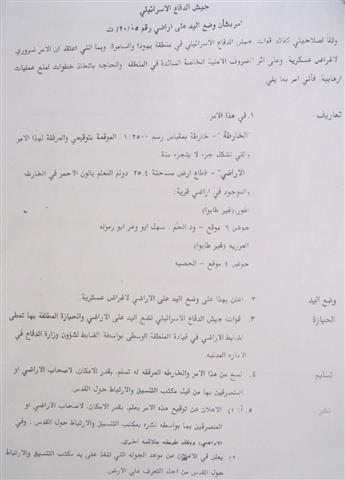 جيش الدفاع الاسرائيلي
امر بشأن وضع اليد على اراضي رقم ٢٠/٠٥/ت
وفقا لصلاحيتي كقائد قوات جيش الدفاع الاسرائيلي في منطقة يهودا والسامرة وبما انني اعتقد ان الامر ضروري
لاغراض عسكرية وعلى اثر الظروف الامنية الخاصة السائدة في المنطقه والحاجه باتخاذ خطوات لمنع عمليات
ارهابية فأنني امر بما يلي
تعاريف
١. في هذا الامر
"الخارطة" - خارطة بمقياس رسم ٢٥٠٠ : ١ الموقعة بتوقيعي والمرفقة لهذا الامر
والتي تشكل جزء لا يتجزء منه
"الاراضي" - قطاع ارض مساحته ٢٥.٤ دونم المعلم بالون الاحمر في الخارطه
والموجود في اراضي قرية:
طور: (غير طابوا)
حوض ٦ موقع - ود الحلم، سهل ابو وعر ابو رموله
العزريه (غير طابوا)
حوض ٤ موقع - الحصيه
وضع اليد
٢. اعلن بهذا على وضع اليد على الاراضي لاغراض عسكرية.
الحيازة
٣. قوات جيش الدفاع الاسرائيلي تضع اليد على الاراضي والحيازة المطلقة بها تعطى
لضابط الاراضي في قيادة المنطقة الوسطى بواسطة الضابط لشؤون وزارة الدفاع في
الادارة المدنيه.
تسليم
٤. نسخ من هذا الامر والخارطه المرفقه له تسلم، بقدر الامكان، لاصحاب الاراضي او
المتصرفين بها من قبل مكتب التنسيق والارتباط حول القدس.
نشر
٥. أ: ١) الاعلان عن توقيع هذه الامر يعلم، بقدر الامكان، لاصحاب الاراضي او
المتصرفين بها بواسطه نشره بمكتب التنسيق والارتباط حول القدس، وفي
الاراضي، وبكل طريقة ملائمه اخرى.
٢) يعلن في الاعلان عن موعد الجوله التي تنفذ على يد مكتب التنسيق والارتباط
حول القدس من اجل التعرف على الارض.